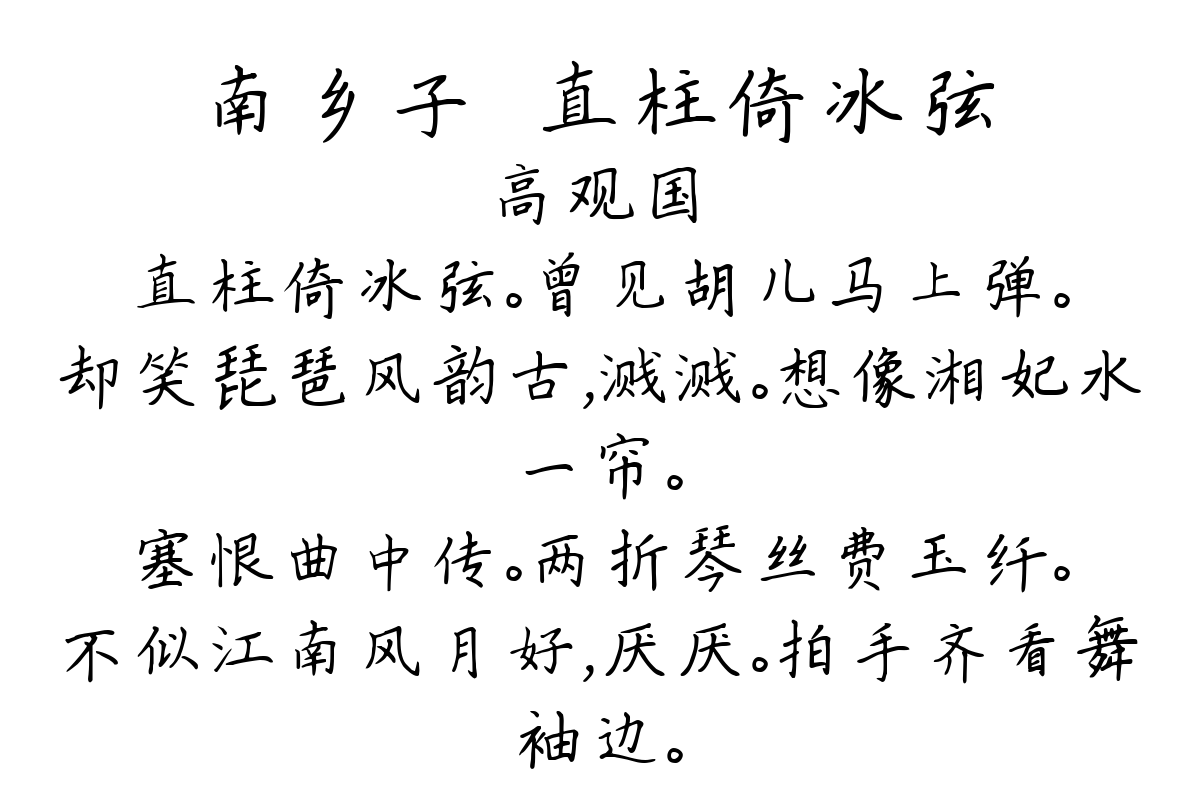 南乡子 直柱倚冰弦
高观国
直柱倚冰弦。曾见胡儿马上弹。
却笑琵琶风韵古,溅溅。想像湘妃水
一帘。
塞恨曲中传。两折琴丝费玉纤。
不似江南风月好,厌厌。拍手齐看舞
袖边。